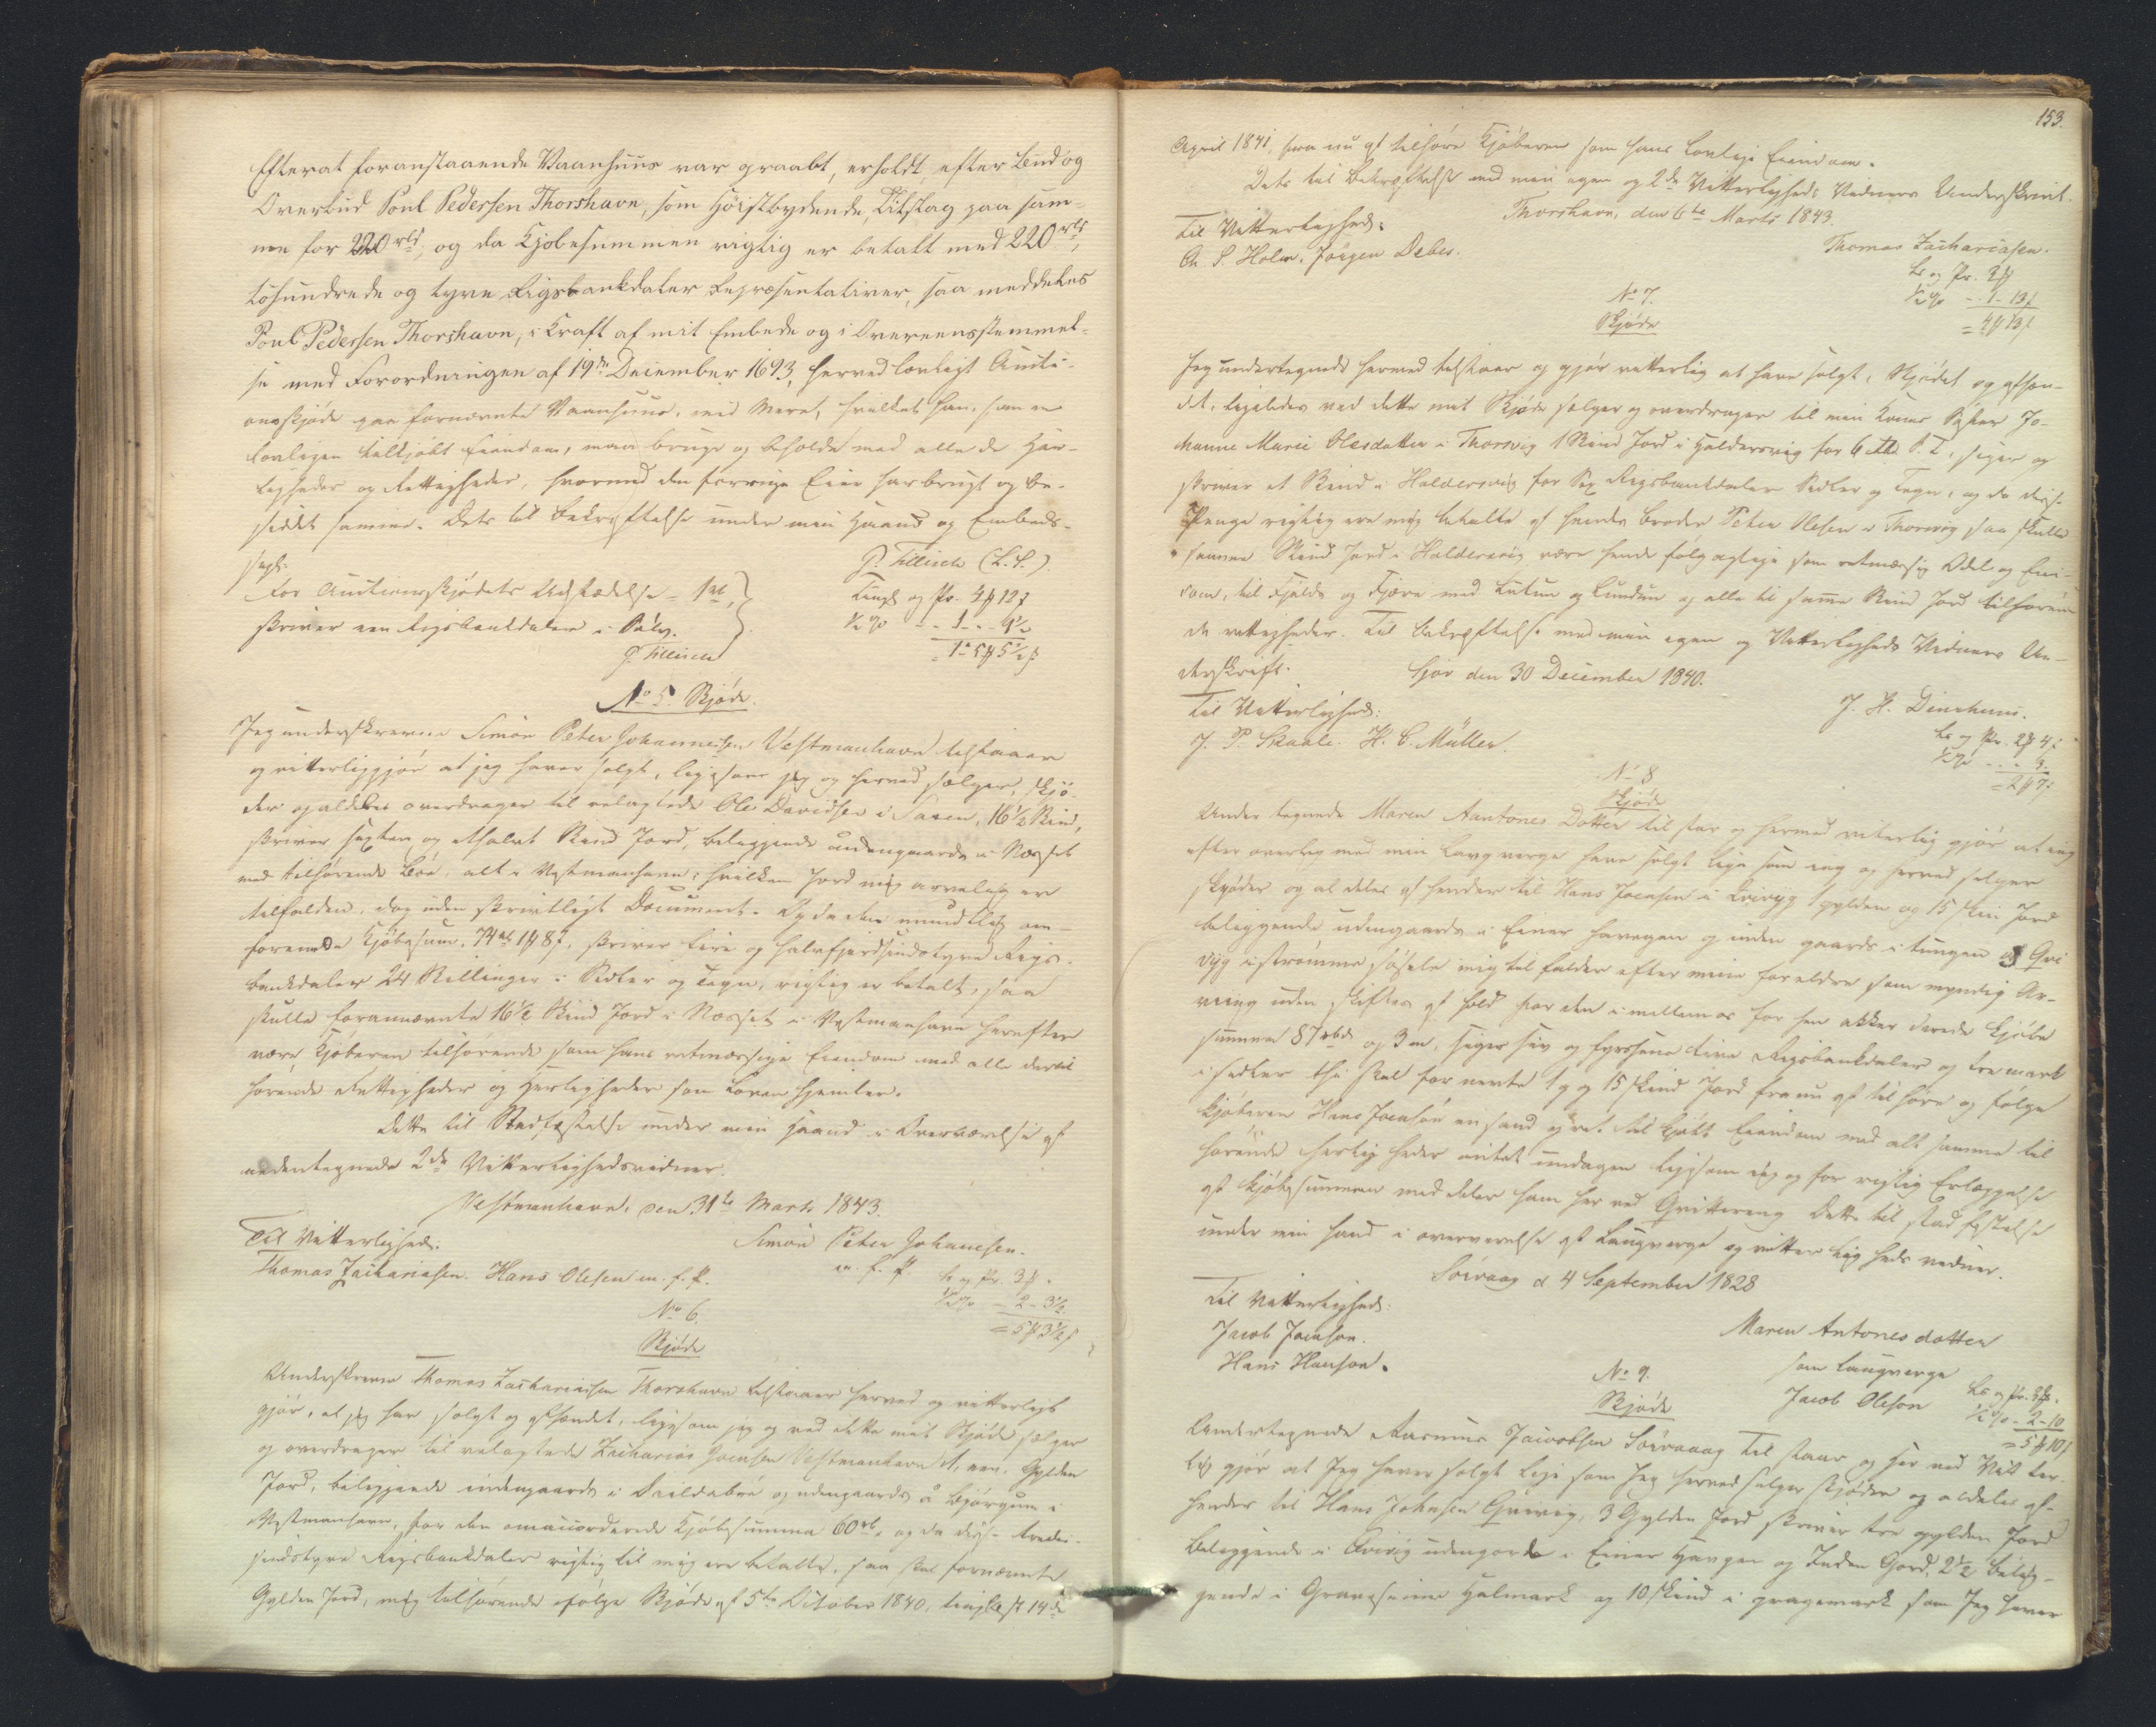 Efterat foranstaaende Vaanhuus var opraabt, erholdt efter Bud og
Overbud Poul Pedersen Thorshavn, som Høistbydende, Tilslag paa sam-
me for 220 rbd, og da Kjøbesummen rigtig er betalt med 220 rbd,
tohundrede og tyve Rigsbankdaler Repræsentativer, saa meddeles
Poul Pedersen Thorshavn, i Kraft af mit Embede og i Overeensstemmel-
se med Forordningen af 19de December 1693, herved lovligt Aucti-
onsskjøde paa fornævnte Vaanhuus, med Mere, hvilket han, som en
lovligen tilkjøbt Eiendom, maa bruge og beholde med alle de Her-
ligheder og Rettigheder, hvormed den forrige Eier har brugt og be-
siddet samme. Dets til Bekræftelse under min Haand og Embeds-
segl.
P. Tillisch (L.S.)
For Auctionsskjødets Udstædelse = 1 rbd,
skriver een Rigsbankdaler i Sølv.
P. Tillisch
Tingl. og Pr. 4 ₻ 12 ſ
½ % - - 1 - - 9½
= 1 - 5 ₻ 5½ ſ
No 5. Skjøde.
Jeg underskrevne Simon Peter Johannesen Vestmanhavn tilstaaer
og vitterliggjør at jeg haver solgt, ligesom jeg og herved sælger, skjø-
der og aldeles overdrager til velagtede Ole Davidsen i Saxen, 16½ Skind,
skriver sexten og et halvt Skind Jord, beliggende udengaards i Næsset
med tilhørende Bøe, alt i Vestmanhavn, hvilken Jord mig arvelig er
tilfalden, dog uden skriftligt Document. Og da den mundtlig om-
forenede Kjøbesum, 74 rbd 1 ₻ 8 ſ, skriver Fire og halvfjerdsindstyve Rigs-
bankdaler 24 Skillinger i Sedler og Tegn, rigtig er betalt, saa
skulle forannævnte 16½ Skind Jord i Næsset i Vestmanhavn herefter
være Kjøberen tilhørende som hans retmæssige Eiendom med alle dertil
hørende Rettigheder og Herligheder som Loven hjemler.
Dette til Stadfæstelse under min Haand i Overværelse af
undertegnede 2de Vitterlighedsvidner.
Vestmanhavn, den 31te Marts 1843.
Til Vitterlighed:
Simon Peter Johanesen.
Thomas Zachariasen. Hans Olesen m. f. P.
m. f. P.
Ls og Pr. 3 ₻.
½ % - 2 - 3½
= 5 ₻ 3½ ſ
No 6.
Skjøde
Underskrevne Thomas Zachariasen Thorshavn tilstaaer herved og vitterligt
gjør, at jeg har solgt og afhændet, ligesom jeg og ved dette mit Skjøde sælger
og overdrager til velagtede Zacharias Joensen Vestmanhavn 1, een, Gylden
Jord, beliggende indengaards i Heildabøe og udengaards å Bjørgum i
Vestmanhavn, for den omaccorderede Kjøbesumma 60 rbd, og da disse tredi-
sindstyve Rigsbankdaler rigtig til mig ere betalte, saa skal fornævnte
Gylden Jord, mig tilhørende ifølge Skjøde af 5te October 1840, tinglæst 14de
153.
April 1841, fra nu af tilhøre Kjøberen som hans lovlige Eiendom.
Dets til Bekræftelse med min egen og 2de Vitterligheds Vidners Underskrivt.
Thorshavn, den 6te Marts 1843.
Til Vitterlighed:
Thomas Zachariasen.
Ch. P. Holm. Jörgen Debes.
Ls og Pr. 3 ₻
½ % - - 1 - 13 ſ
= 4 ₻ 13 ſ
No 7.
Skjøde
Jeg undertegnede hermed tilstaaer og gjør vitterlig at have solgt, skjødet og afhæn-
det, ligeledes ved dette mit Skjøde sælger og overdrager til min Kones Søster Jo-
hanne Marie Olesdatter i Thorsvig 1 Skind Jord i Haldersvig for 6 rbd. S. T., siger og
skriver et Skind i Haldersvig for Sex Rigsbankdaler Sedler og Tegn, og da disse
Penge rigtig ere mig betalte af hendes broder Peter Olesen i Thorsvig saa skulle
samme Skind Jord i Haldersvig være hende følgagtige som retmæssig Odel og Eien-
dom, til Fjelds og Fjære med Lutum og Lundum og alle til samme Skind Jord tilhøren-
de rettigheder. Til bekræftelse med min egen og Vitterligheds Vidners Un-
derskrift.
Gjov den 30 December 1840.
Til Vitterlighed:
J. P. Skaale. H. C. Müller.
J. H. Dinehuus.
Ls og Pr. 2 ₻ 4 ſ
½ % - - - 3.
= 2 ₻ 7 ſ
No 8
Skjøde
Undertegnede Maren Aantones Dotter til staar og hermed viterlig gjør at ieg
efter overleg med min Lavg verge have solgt lige som ieg og herved selger
skjøder og al deles af hender til Hans Joensen i Qvivyg 1 gylden og 15 Skin Jord
beliggende udengaards i Einer havegen og inden gaards i tungen i Qvi
vyg i Strømme sysele mig til falden efter mine foreldre som myndig Ar-
ving uden skiftes af hold for den i mellem os for hen akkorderede kjøbe
summa 87 rbdr og 3 m, siger syv og fyrsinds tive Rigsbankdaler og tre mark
i sedler thi skal for nevnte 1 g og 15 skind Jord fra nu af til høre og følge
kjøberen Hans Joenson en sand og ret til kjøbt Eiendom med alt samme til
hørende herlig heder intet undtagen ligesom ieg og for rigtig Erlæggelse
af kjøbesummen med deler ham her ved Qvittering Dette til stad festelse
under min hand i oververelse af Laugverge og vitter lig heds vedner.
Sorvaag d 4 September 1828
Til Vitterlighed:
Jacob Joenson.
Hans Hanson.
Maren Antones dotter
som Laugverge
Jacob Oleson
Ls og Pr. 3 ₻.
½ % - 2 - 10
= 5 ₻ 10 ſ
No 9.
Skjøde
Undertegnede Rasmus Jacobsen Sørvaag Til staar og her ved Vitter-
lig gjør at Jeg haver solgt lige som Jeg herved selger skjøder og aldeles af-
hender til Hans Johnsen Qvivig, 3 Gylden Jord skriver tre gylden Jord
Beleggende i Qvivig udengords i Einer Hangen og Inden Gord, 2½ belig-
gende i Halmark og 10 skind i som Jeg haver